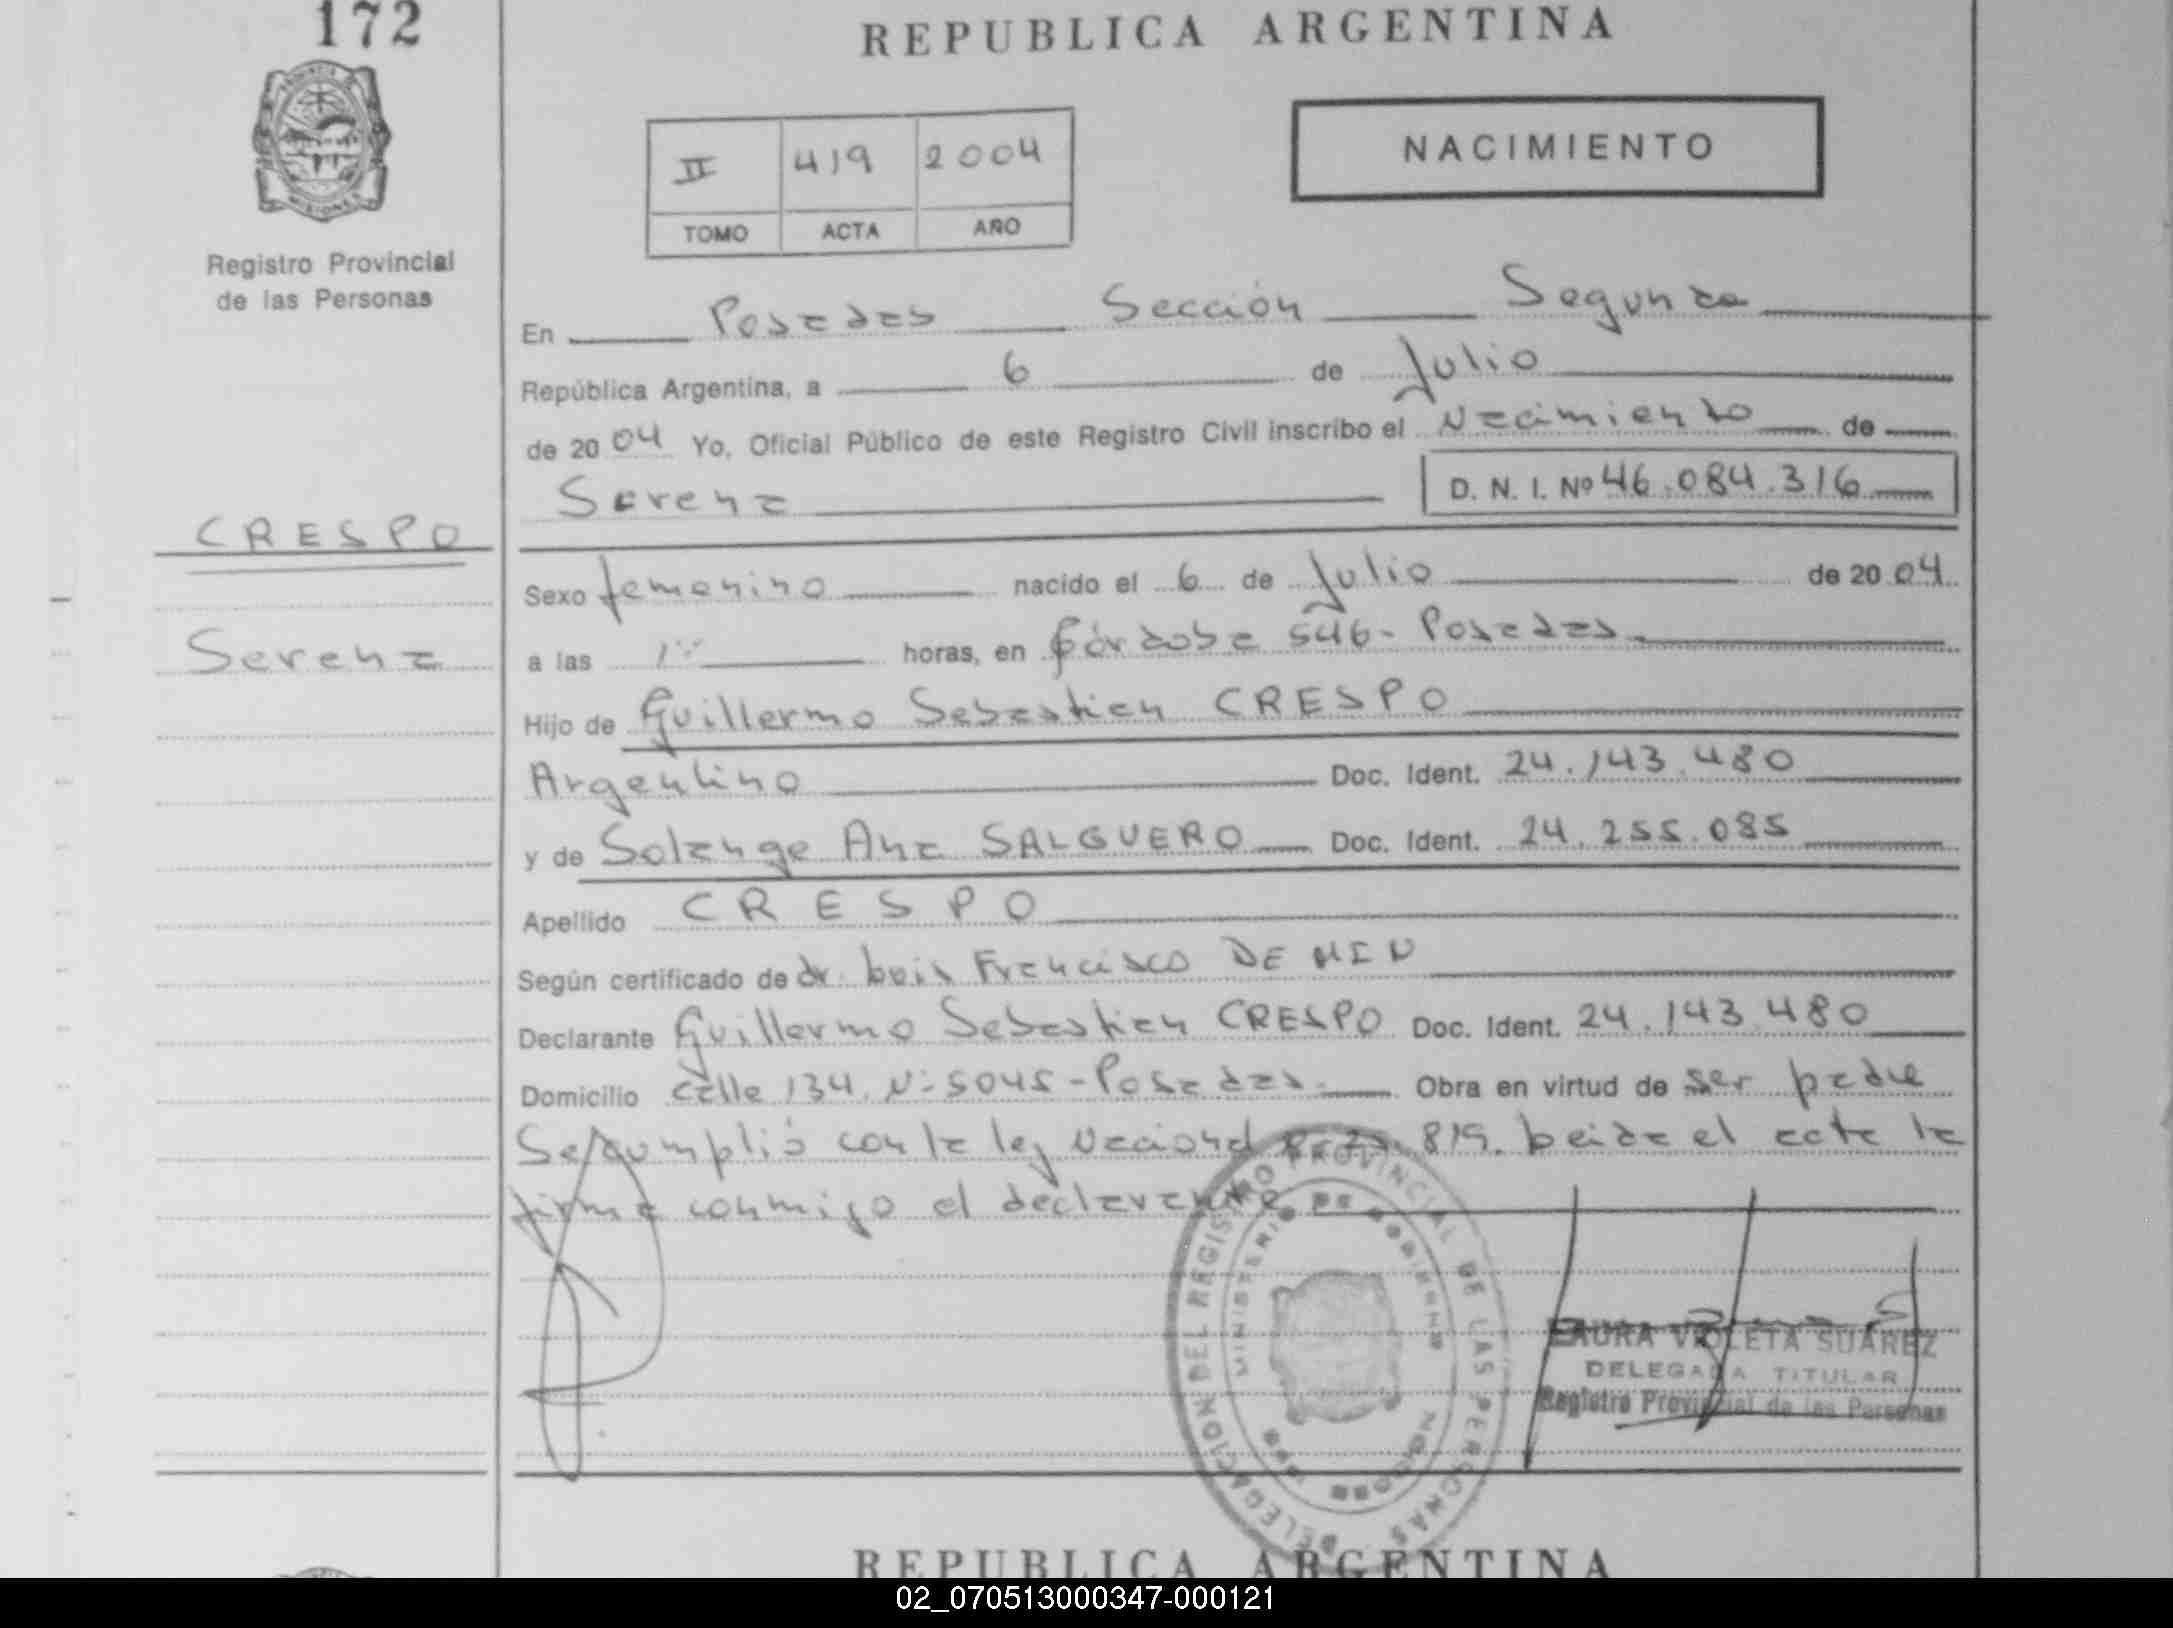 172
REPUBLICA ARGENTINA
PROVINCIA DE
MISIONES
Registro Provincial
de las Personas
II 419 2004
TOMO ACTA AÑO
NACIMIENTO
En Posadas Sección Segunda
República Argentina, a 6 de Julio
de 2004 Yo, Oficial Público de este Registro Civil inscribo el Nacimiento de
Serena D. N. I. Nº 46.084.316
CRESPO
Serena
Sexo femenino nacido el 6 de Julio de 2004
a las horas, en Córdoba 546- Posadas.
Hijo de Guillermo Sebastian CRESPO
Argentino Doc. Ident. 24.143.480
y de Solange Ana SALGUERO Doc. Ident. 24.255.085
Apellido CRESPO
Según certificado de dr. Luis Francisco DE MIN
Declarante Guillermo Sebastian CRESPO Doc. Ident. 24.143.480
Domicilio calle 134. Nº 5045 - Posadas. Obra en virtud de ser padre
Se cumplió con la ley Nacional 819. Leida el acta la
firma conmigo el declarante
DELEGACION DEL REGISTRO PROVINCIAL DE LAS PERSONAS
MINISTERIO DE GOBIERNO
LAURA VIOLETA SUAREZ
DELEGADA TITULAR
Registro Provincial de las Personas
REPUBLICA ARGENTINA
02_070513000347-000121